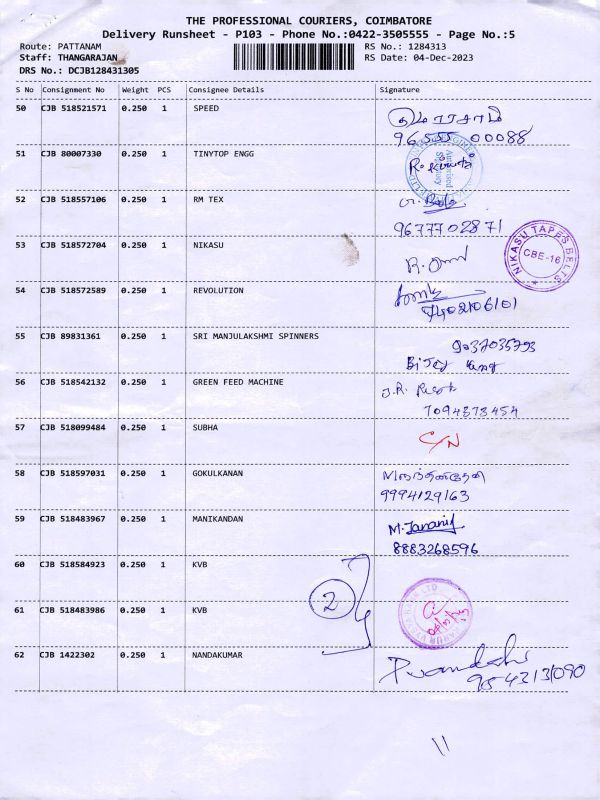 THE PROFESSIONAL COURIERS, COIMBATORE
Delivery Runsheet - P103 - Phone No.:0422-3505555 - Page No.:5
Route: PATTANAM RS No.: 1284313
Staff: THANGARAJAN RS Date: 04-Dec-2023
DRS No.: DCJB128431305
S No Consignment No Weight PCS Consignee Details Signature
50 CJB 518521571 0.250 1 SPEED
96555 00088
51 CJB 80007330 0.250 1 TINYTOP ENGG
Authorised Signatory
52 CJB 518557106 0.250 1 RM TEX
9677702871
53 CJB 518572704 0.250 1 NIKASU
NIKASU TAPES BELTS
CBE-16
54 CJB 518572589 0.250 1 REVOLUTION
55 CJB 89831361 0.250 1 SRI MANJULAKSHMI SPINNERS
9037035793
56 CJB 518542132 0.250 1 GREEN FEED MACHINE
7094373454
57 CJB 518099484 0.250 1 SUBHA
C/N
58 CJB 518597031 0.250 1 GOKULKANAN
9994129163
59 CJB 518483967 0.250 1 MANIKANDAN
M. Janani
8883268596
60 CJB 518584923 0.250 1 KVB
2
61 CJB 518483986 0.250 1 KVB
62 CJB 1422302 0.250 1 NANDAKUMAR
11